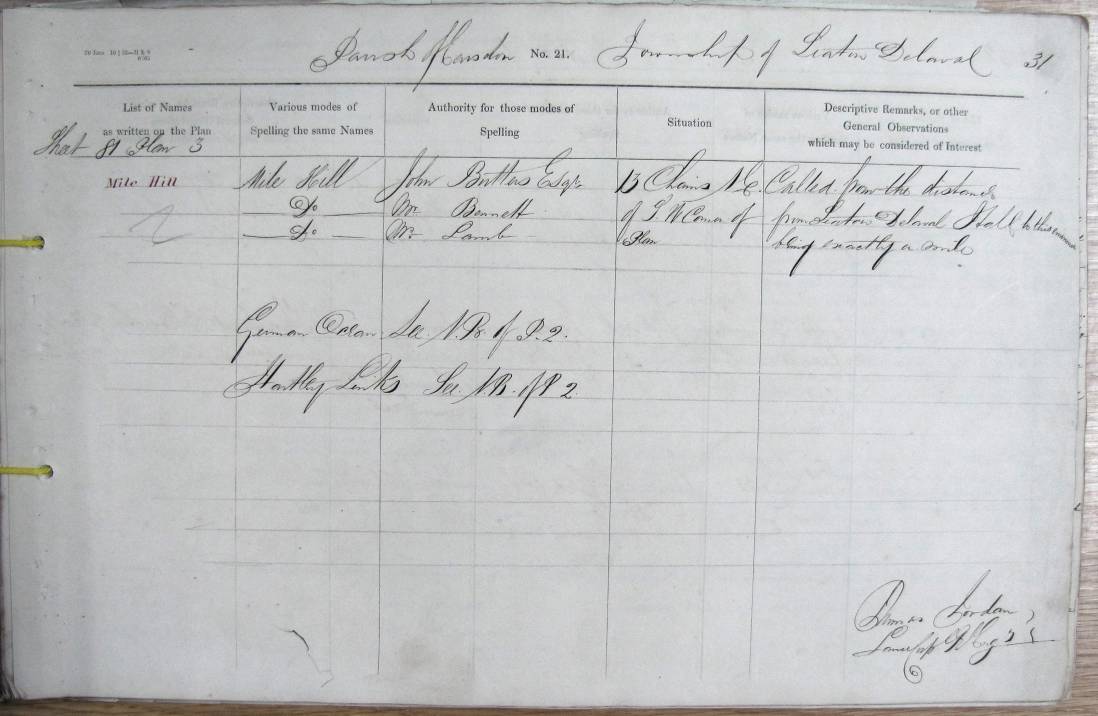 Parish of Earsdon No. 21. Township of Seaton Delaval 31
List of Names
as written on the Plan
Various modes of
Spelling the same Names
Authority for those modes of
Spelling
Situation
Descriptive Remarks, or other
General Observations
which may be considered of Interest
Sheet 81 Plan 3
Mile Hill
Mile Hill
Do
Do
John Butters Esqr
Mr. Bennett
Mr. Lamb
13 Chains N.E.
of S.W. Corner of
Plan
Called from the distance
from Seaton Delaval Hall to this eminence
being exactly a mile
German Ocean See N.B. of P. 2.
Hartley Links See N.B. of P 2.
Jordan